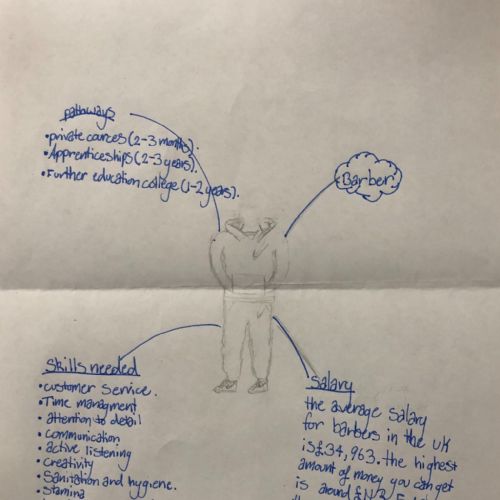 pathways
•private cources (2-3 months).
•Apprenticeships (2-3 years).
•Further education college (1-2 years).
Barber
Skills needed
•customer service.
•Time managment
•attention to detail
•communication
•active listening
•creativity
•Sanitation and hygiene.
•Stamina
Salary
the average salary
for barbers in the uk
is £34,963. the highest
amount of money you can get
is around